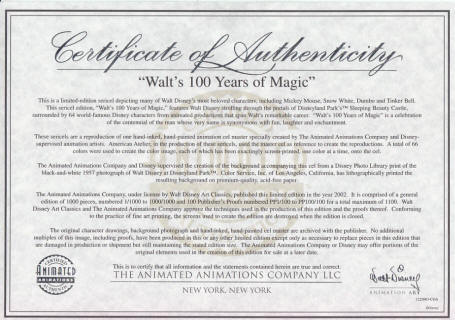 Certificate of Authenticity
"Walt's 100 Years of Magic"
This is a limited-edition sericel depicting many of Walt Disney's most beloved characters, including Mickey Mouse, Snow White, Dumbo and Tinker Bell.
This sericel edition, "Walt's 100 Years of Magic," features Walt Disney strolling through the portals of Disneyland Park's™ Sleeping Beauty Castle,
surrounded by 64 world-famous Disney characters from animated productions that span Walt's remarkable career. "Walt's 100 Years of Magic" is a celebration
of the centennial of the man whose very name is synonymous with fun, laughter and enchantment.
These sericels are a reproduction of one hand-inked, hand-painted animation cel master specially created by The Animated Animations Company and Disney-
supervised animation artists. American Atelier, in the production of these sericels, used the master cel as reference to create the reproductions. A total of 66
colors were used to create the color image, each of which has been exactingly screen-printed, one color at a time, onto the cel.
The Animated Animations Company and Disney supervised the creation of the background accompanying this cel from a Disney Photo Library print of the
black-and-white 1957 photograph of Walt Disney at Disneyland Park™. Color Service, Inc. of Los Angeles, California, has lithographically printed the
resulting background on premium-quality, acid-free paper.
The Animated Animations Company, under license by Walt Disney Art Classics, published this limited edition in the year 2002. It is comprised of a general
edition of 1000 pieces, numbered 1/1000 to 1000/1000 and 100 Publisher's Proofs numbered PP1/100 to PP100/100 for a total maximum of 1100. Walt
Disney Art Classics and The Animated Animations Company approve the techniques used in the production of this edition and the proofs thereof. Conforming
to the practice of fine art printing, the screens used to create the edition are destroyed when the edition is closed.
The original character drawings, background photograph and hand-inked, hand-painted cel master are archived with the publisher. No additional
multiples of this image, including proofs, have been produced in this or any other limited edition except only as necessary to replace pieces in this edition that
are damaged in production or shipment but still maintaining the stated edition size. The Animated Animations Company or Disney may offer portions of the
original elements used in the creation of this edition for sale at a later date.
This is to certify that all information and the statements contained herein are true and correct.
THE ANIMATED ANIMATIONS COMPANY LLC
NEW YORK, NEW YORK
ANIMATED
ANIMATIONS
Walt Disney
ANIMATION ART
©Disney